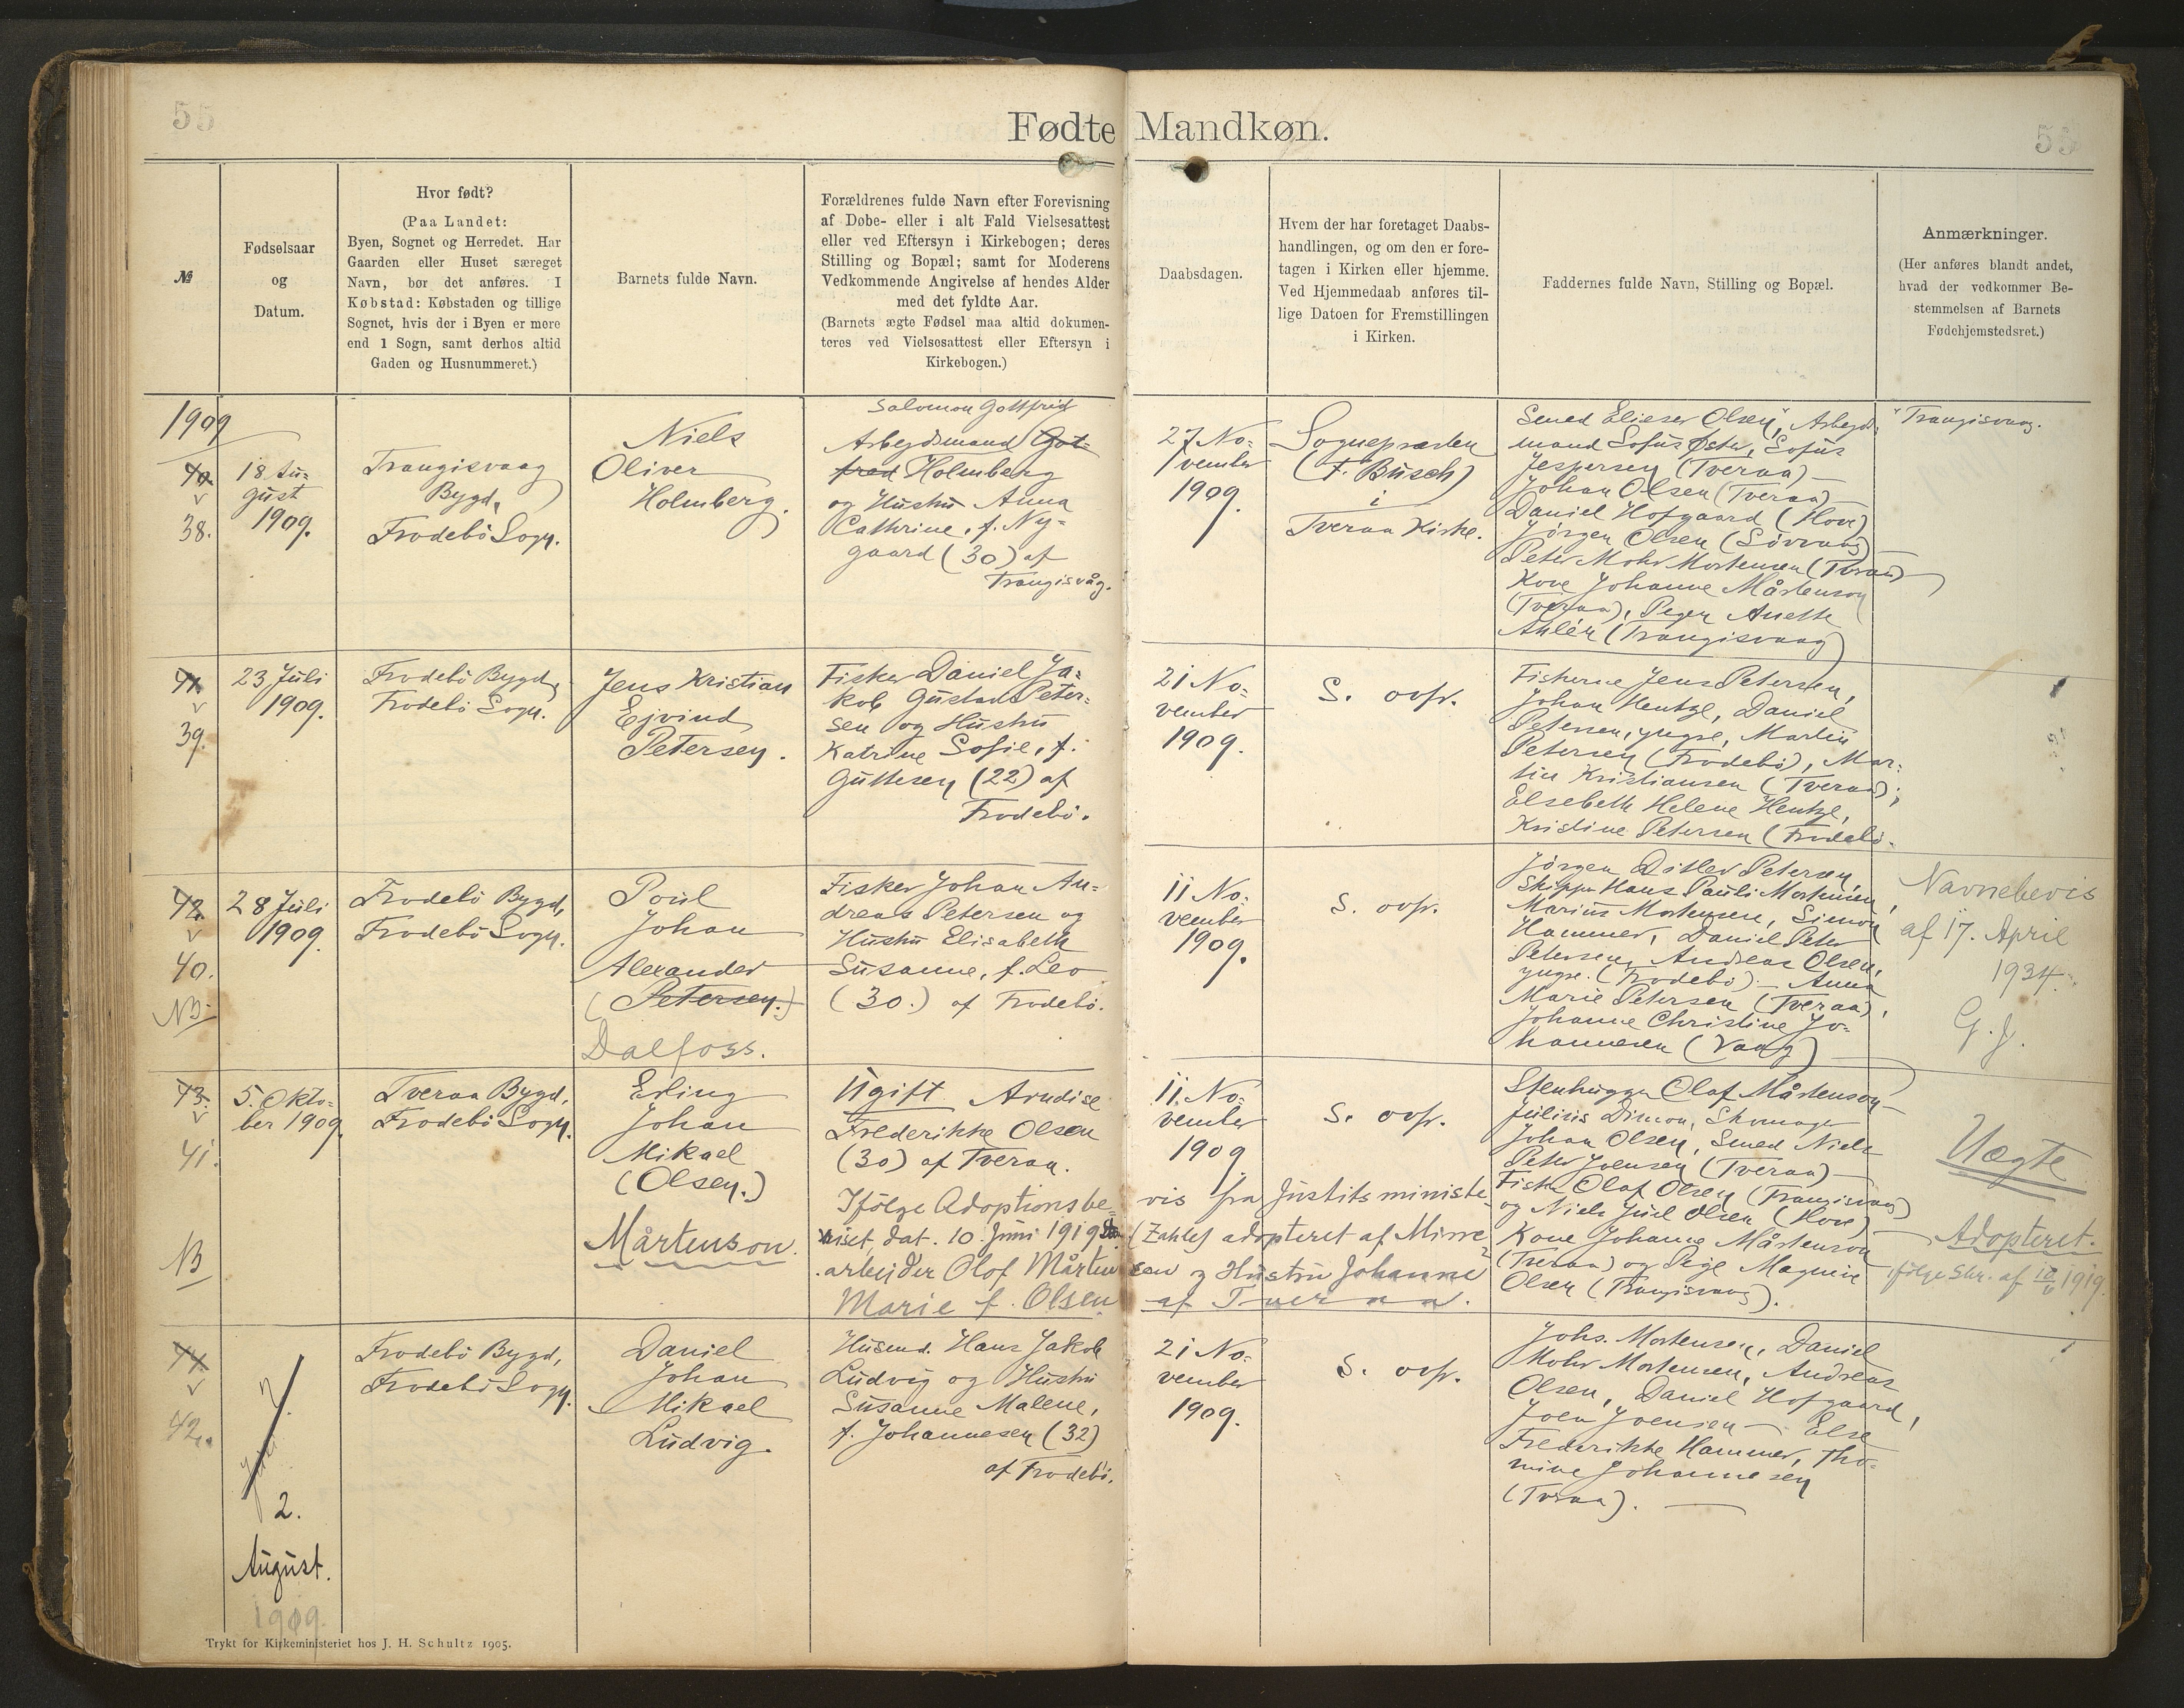 55
55
Fødte Mandkøn.
№
Fødselsaar
og
Datum.
Hvor født?
(Paa Landet:
Byen, Sognet og Herredet. Har
Gaarden eller Huset særeget
Navn, bør det anføres. I
Købstad: Købstaden og tillige
Sognet, hvis der i Byen er mere
end 1 Sogn, samt derhos altid
Gaden og Husnummeret.)
Barnets fulde Navn.
Forældrenes fulde Navn efter Forevisning
af Døbe- eller i alt Fald Vielsesattest
eller ved Eftersyn i Kirkebogen; deres
Stilling og Bopæl; samt for Moderens
Vedkommende Angivelse af hendes Alder
med det fyldte Aar.
(Barnets ægte Fødsel maa altid dokumen-
teres ved Vielsesattest eller Eftersyn i
Kirkebogen.)
Daabsdagen.
Hvem der har foretaget Daabs-
handlingen, og om den er fore-
tagen i Kirken eller hjemme.
Ved Hjemmedaab anføres til-
lige Datoen for Fremstillingen
i Kirken.
Faddernes fulde Navn, Stilling og Bopæl.
Anmærkninger.
(Her anføres blandt andet,
hvad der vedkommer Be-
stemmelsen af Barnets
Fødehjemstedsret.)
1909
40.
38.
18 Au-
gust
1909.
Trangisvaag
Bygd,
Frodebö Sogn.
Niels
Oliver
Holmberg.
Salomon Gottfred
Arbejdsmand Got-
fred Holmberg
og Hustru Anna
Cathrine, f. Ny-
gaard (30) af
Trangisvåg.
27 No-
vember
1909.
Sognepræsten
(F. Busch)
i
Tveraa Kirke.
Smed Elieser Olsen, Arbejds-
mand Sofus Øster, Sofus
Jespersen (Tveraa) —
Johan Olsen (Tveraa) —
Daniel Hofgaard (Hove)
Jørgen Olsen (Sövraag)
Peter Mohr Mortensen (Tveraa)
Kone Johanne Mårtenson
(Tveraa), Pigen Anette
Ahlén (Trangisvaag)
Trangisvaag.
41.
39.
23 Juli
1909.
Frodebö Bygd,
Frodebö Sogn.
Jens Kristian
Ejvind
Petersen.
Fisker Daniel Ja-
kob Gustav Peter-
sen og Hustru
Katrine Sofie, f.
Guttesen (22) af
Frodebö.
21 No-
vember
1909.
S. ovfr.
Fiskerne Jens Petersen,
Johan Hentze, Daniel
Petersen, yngre, Martin
Petersen (Frodebö), Mar-
tin Kristiansen (Tveraa),
Elsebeth Helene Hentze,
Kristine Petersen (Frodebö.
42.
40.
NB
28 Juli
1909.
Frodebö Bygd,
Frodebö Sogn.
Poul
Johan
Alexander
(Petersen.)
Dalfoss.
Fisker Johan An-
dreas Petersen og
Hustru Elisabeth
Susanne, f. Leo
(30.) af Frodebö.
11 No-
vember
1909.
S. ovfr.
Jørgen Ditlev Petersen,
Skipper Hans Pauli Mortensen,
Marius Mortensen, Simon
Hammer, Daniel Peter
Petersen, Andreas Olsen,
yngre. (Frodebö) — Anna
Marie Petersen (Tveraa),
Johanne Christine Jo-
hannesen (Vaag)
Navnebevis
af 17. April
1934.
G. J.
43.
41.
NB
5. Okto-
ber 1909.
Tveraa Bygd,
Frodebö Sogn.
Erling
Johan
Mikael
(Olsen.)
Mårtenson.
Ugift Arndise
Frederikke Olsen
(30) af Tveraa.
11. No-
vember
1909
S. ovfr.
Ifölge Adoptionsbe- vis fra Justitsministe-
riet, dat. 10. Juni 1919 (Zahle) adopteret af Mine
arbejder Olof Mårten sen og Hustru Johanne
Marie f. Olsen af Tveraa.
Stenhugger Olof Mårtenson —
Julius Dimon, Skomager
Johan Olsen, Smed Niels
Peter Joensen (Tveraa) —
Fisker Olaf Olsen (Trangisvaag)
og Niels Juul Olsen (Hove) —
Kone Johanne Mårtenson
(Tveraa) og Pige Magnine
Olsen (Trangisvaag).
Uægte
Adopteret.
ifölge Skr. af 10/6 1919.
44.
42.
2.
August.
1909.
Frodebö Bygd,
Frodebö Sogn.
Daniel
Johan
Mikael
Ludvig.
Husmd. Hans Jakob
Ludvig og Hustru
Susanne Malene,
f. Johannesen (32)
af Frodebö.
21 No-
vember
1909.
S. ovfr.
Johs. Mortensen, Daniel
Mohr Mortensen, Andreas
Olsen, Daniel Hofgaard,
Joen Joensen — Else
Frederikke Hammer, Tho-
mine Johannesen
(Tveraa). —
Trykt for Kirkeministeriet hos J. H. Schultz 1905.